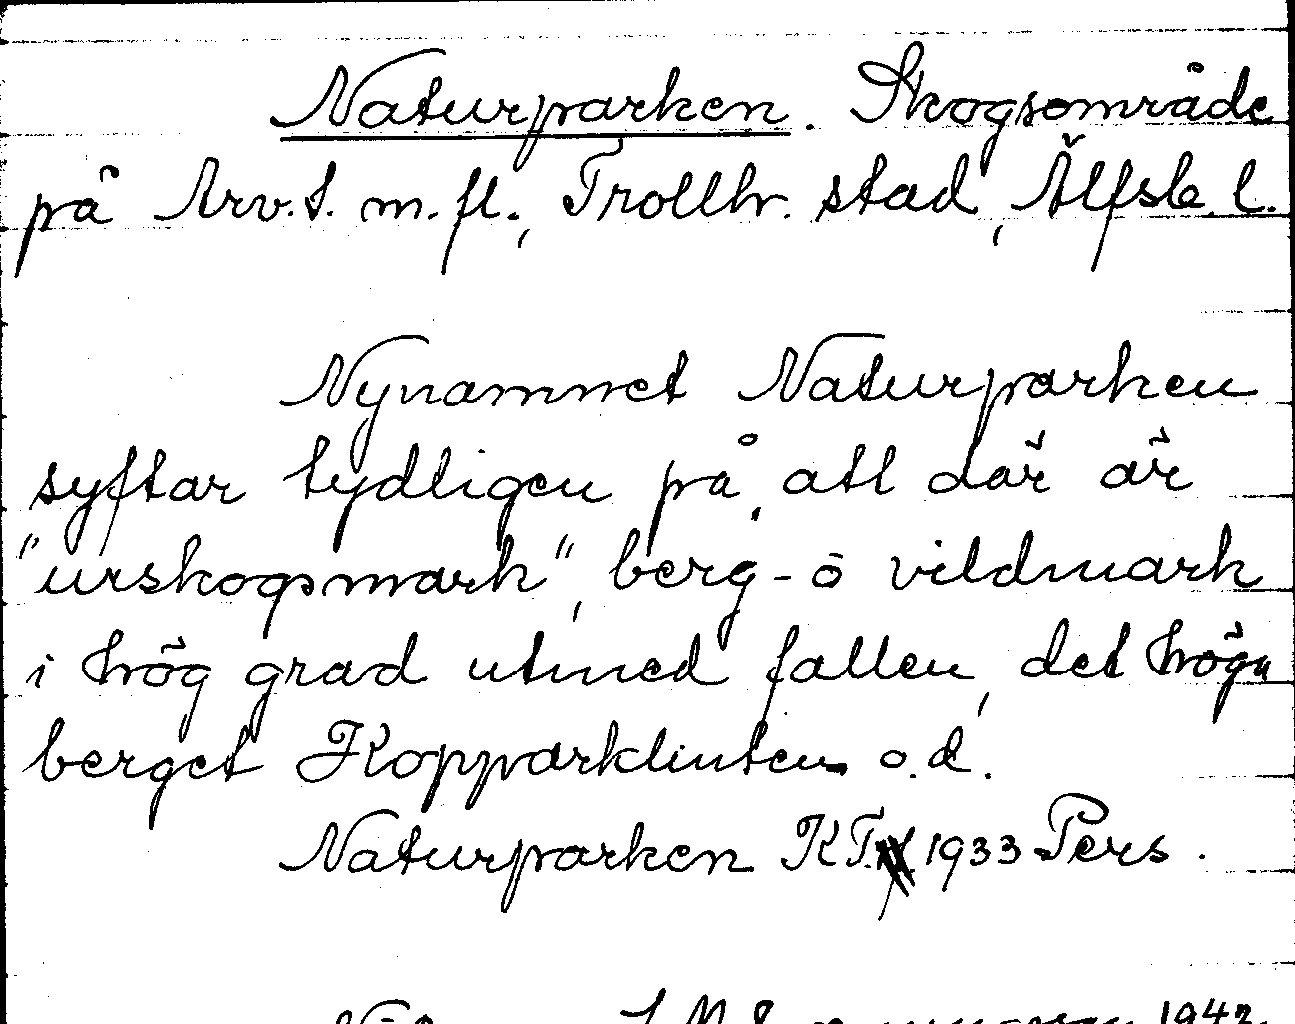 Naturparken. Skogsområde
på Arv.t. m.fl., Trollh. stad, Älfsb. l.
Nynamnet Naturparken
syftar tydligen på, att där är
"urskogsmark", berg- o vildmark
i hög grad utmed fallen, det höga
berget Kopparklinten o.d.
Naturparken KT. 1933 Pers.
1942.